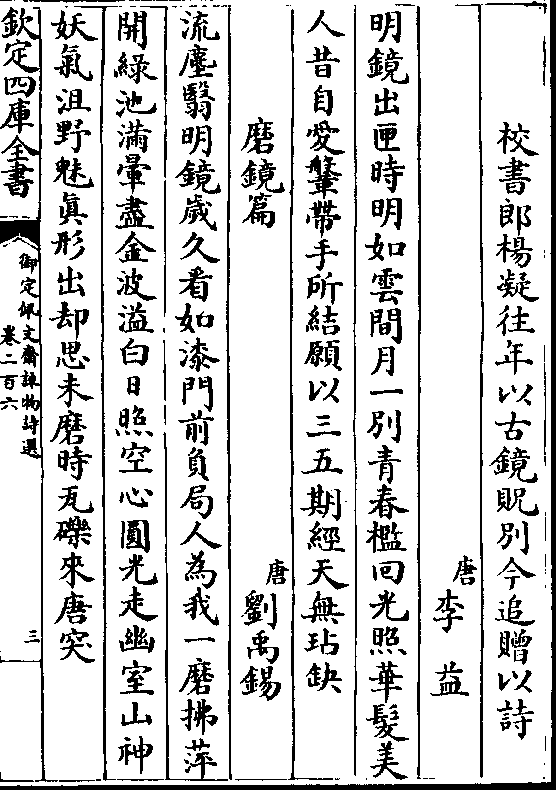 校書郎楊凝往年以古鏡貺別今追贈以詩
唐李益
明鏡出匣時明如雲間月一別青春檻回光照華髮美
人昔自愛鞶帶手所結願以三五期經天無玷缺
磨鏡篇
唐劉禹錫
流塵翳明鏡歲久看如漆門前負局人為我一磨拂萍
開綠池滿暈盡金波溢白日照空心圓光走幽室山神
妖氣沮野魅眞形出却思未磨時瓦礫來唐突
欽定四庫全書
御定佩文齋詠物詩選
卷二百六
三